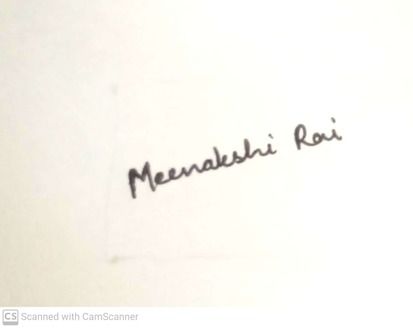 Meenakshi Rai
CS Scanned with CamScanner